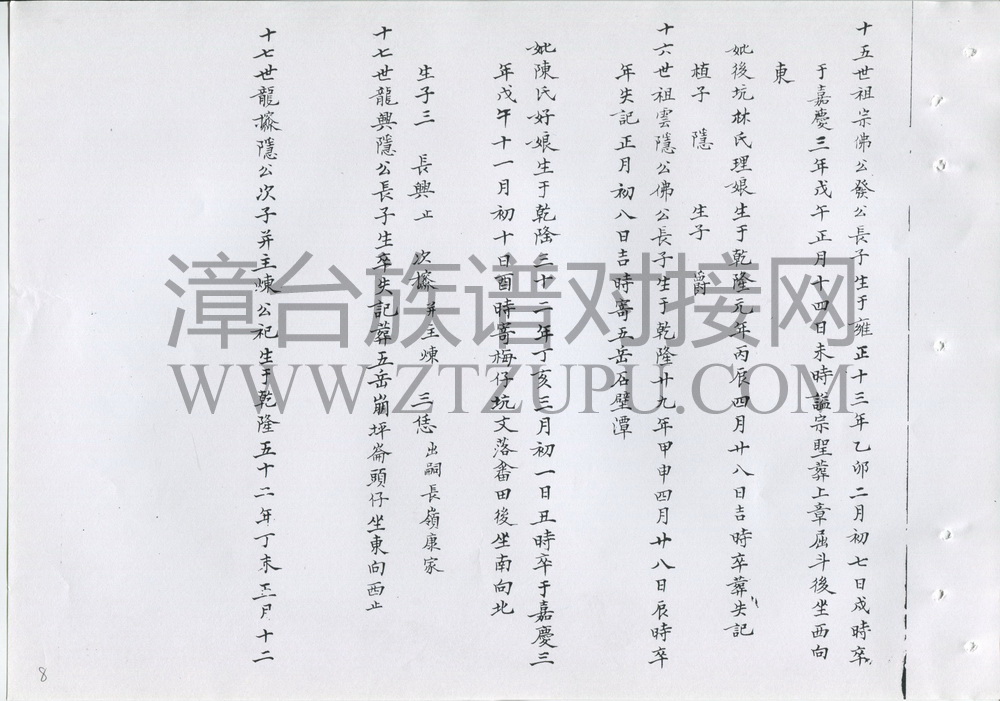 十五世祖宗佛公發公長子生于雍正十三年乙卯二月初七日戍時卒
于嘉慶三年戊午正月十四日未時謚宗聖葬上章屈斗後坐西向
東
妣後坑林氏理娘生于乾隆元年丙辰四月廿八日吉時卒葬失記
植子 隱 生子 爵
十六世祖雲隱公佛公長子生于乾隆廿九年甲申四月廿八日辰時卒
年失記正月初八日吉時寄五岳石壁潭
妣陳氏好娘生于乾隆三十二年丁亥三月初一日丑時卒于嘉慶三
年戊午十一月初十日酉時寄梅仔坑文落畬田後坐南向北
生子三 長興止 次檫并主煉 三恁出嗣長嶺康家
十七世龍興隱公長子生卒失記葬五岳崩坪崙頭仔坐東向西止
十七世龍檫隱公次子并主煉公祀生于乾隆五十二年丁未正月十二
8
漳台族谱对接网
WWW.ZTZUPU.COM